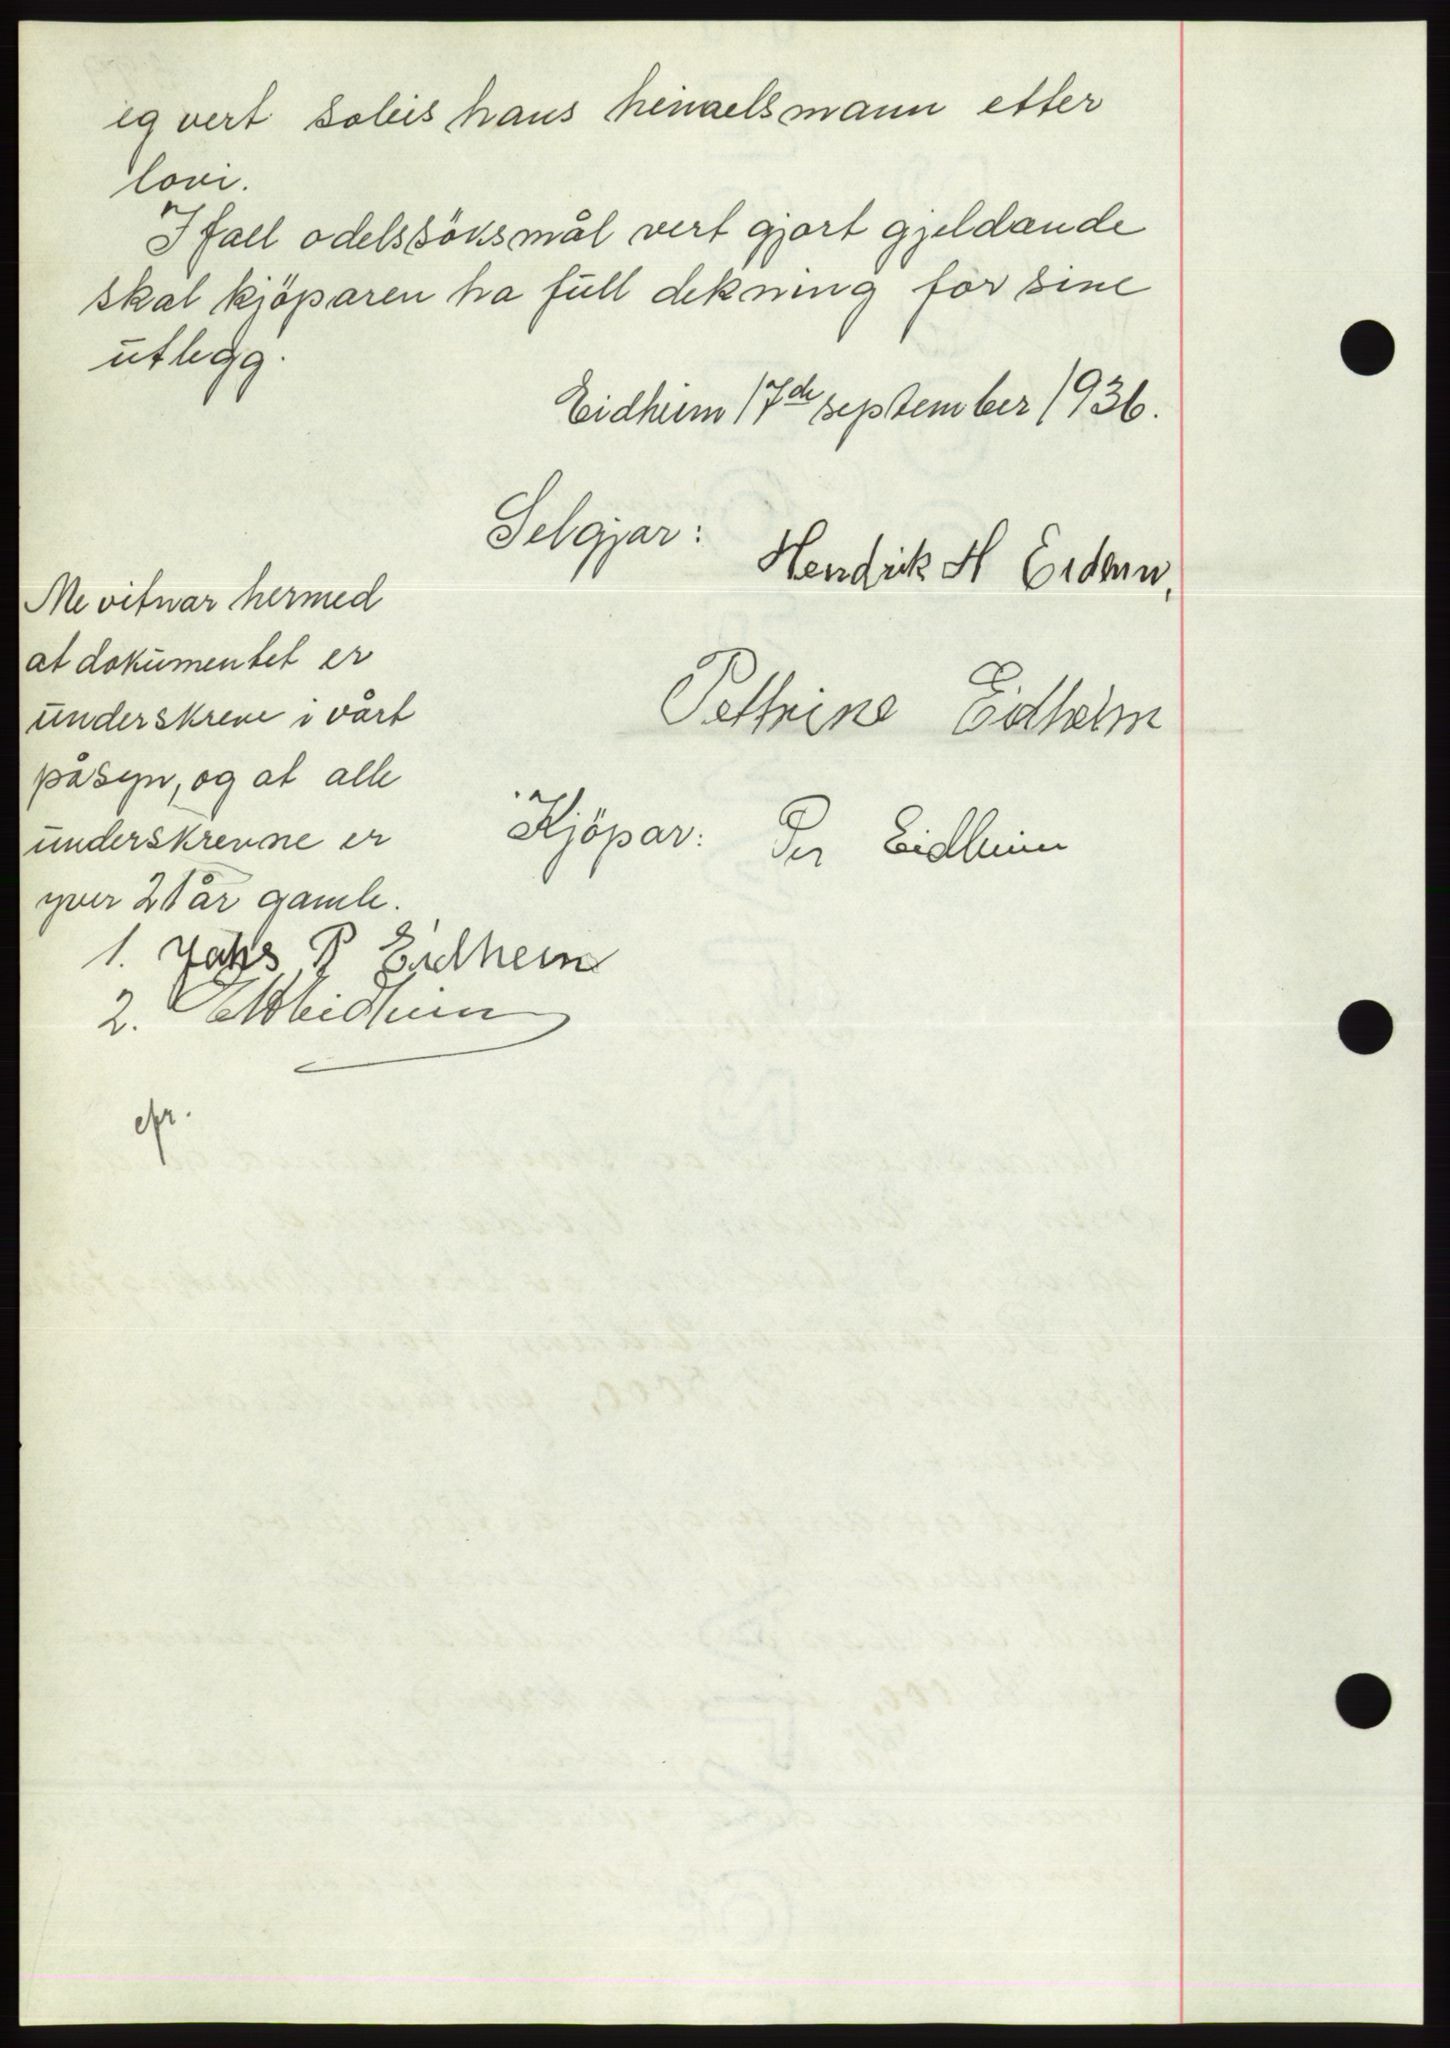 eg vert soleis hans heimelsmann etter
lovi.
I fall odelssöksmål vert gjort gjeldande
skal kjöparen ha full dekning for sine
utlegg.
Eidheim 17de september 1936.
Selgjar:
Hendrik H
Me vitnar hermed
at dokumentet er
underskreve i vårt
påsyn, og at alle
underskrevne er
yver 21 år gamle.
Pethrine Eidheim
Kjöpar: Per Eidheim
1. Jahs P Eidheim
2.
cfr.